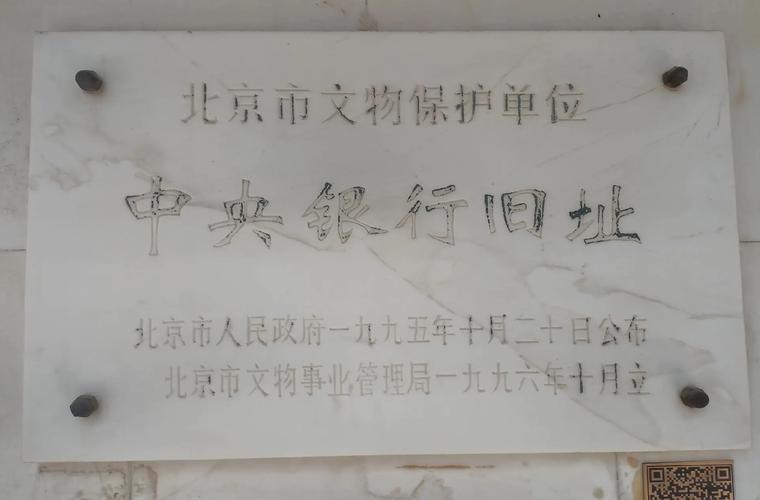 北京市文物保护单位
中央银行旧址
北京市人民政府一九九五年十月二十日公布
北京市文物事业管理局一九九六年十月立